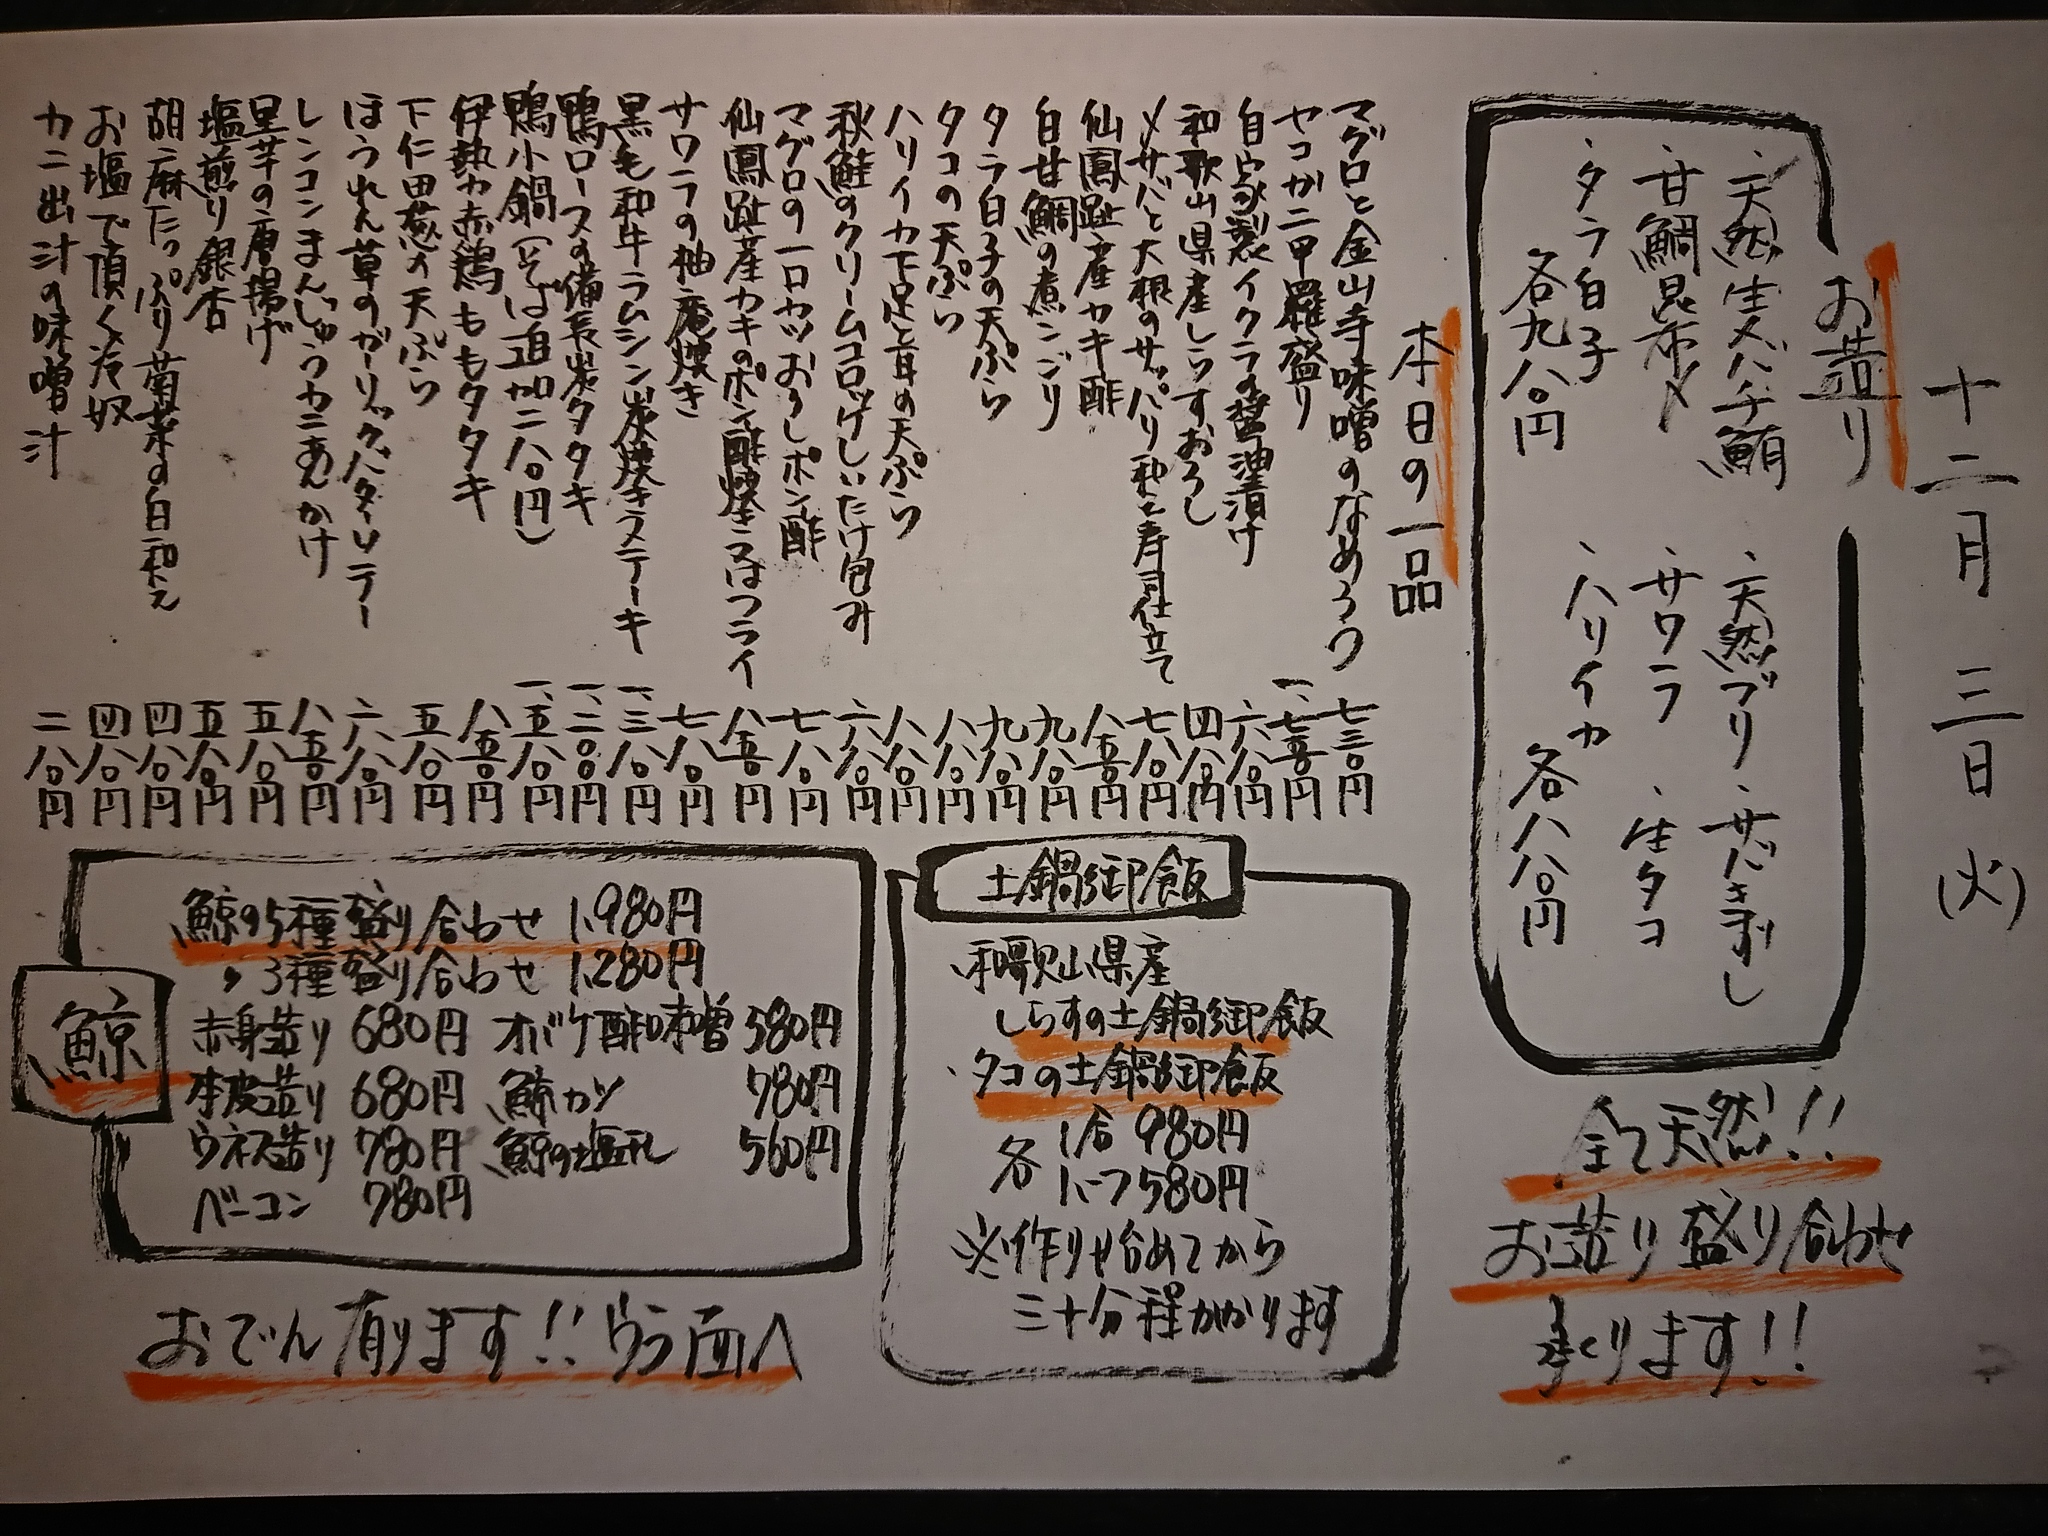 十二月三日(火)
お造り
・天然生メバチ鮪
・天然ブリ
・サバきずし
・甘鯛昆布〆
・サワラ
・生タコ
・タラ白子
・ハリイカ
各九八〇円
各八八〇円
全て天然!!
お造り盛り合わせ
承ります!!
本日の一品
マグロと金山寺味噌のなめろう 七三〇円
ヤコガニ甲羅盛り 一、七五〇円
自家製イクラの醤油漬け 六八〇円
和歌山県産しらすおろし 四八〇円
〆サバと大根のサッパリ和え寿司仕立て 七八〇円
仙鳳趾産カキ酢 八五〇円
白甘鯛の煮こごり 九八〇円
タラ白子の天ぷら 九八〇円
タコの天ぷら 八八〇円
ハリイカ下足と耳の天ぷら 八八〇円
秋鮭のクリームコロッケしいたけ包み 六八〇円
マグロの一口カツおろしポン酢 七八〇円
仙鳳趾産カキのポン酢焼き又はフライ 八五〇円
サワラの柚庵焼き 七八〇円
黒毛和牛ラムシン炭焼きステーキ 一、三八〇円
鴨ロースの備長炭タタキ 一、二〇〇円
鴨小鍋(そば追加二八〇円) 一、五八〇円
伊勢力赤鶏ももタタキ 八五〇円
下仁田葱の天ぷら 五八〇円
ほうれん草のガーリックバターソテー 六八〇円
レンコンまんじゅうカニあんかけ 八五〇円
里芋の唐揚げ 五八〇円
塩煎り銀杏 五八〇円
胡麻たっぷり菊菜の白和え 四八〇円
お塩で頂く冷奴 四八〇円
カニ出汁の味噌汁 二八〇円
土鍋御飯
・和歌山県産
しらすの土鍋御飯
・タコの土鍋御飯
各 1合 980円
ハーフ580円
※作り始めてから
三十分程かかります
鯨
鯨の5種盛り合わせ 1,980円
〃 3種盛り合わせ 1,280円
赤身造り 680円 オバケ酢味噌 580円
本皮造り 680円 鯨カツ 780円
ウネス造り 780円 鯨の塩ユレ 560円
ベーコン 780円
おでん有ります!!ウラ面へ